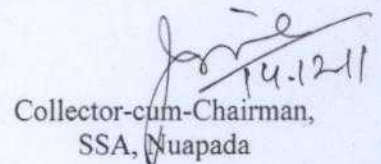 14.12.11
Collector-cum-Chairman,
SSA, Nuapada